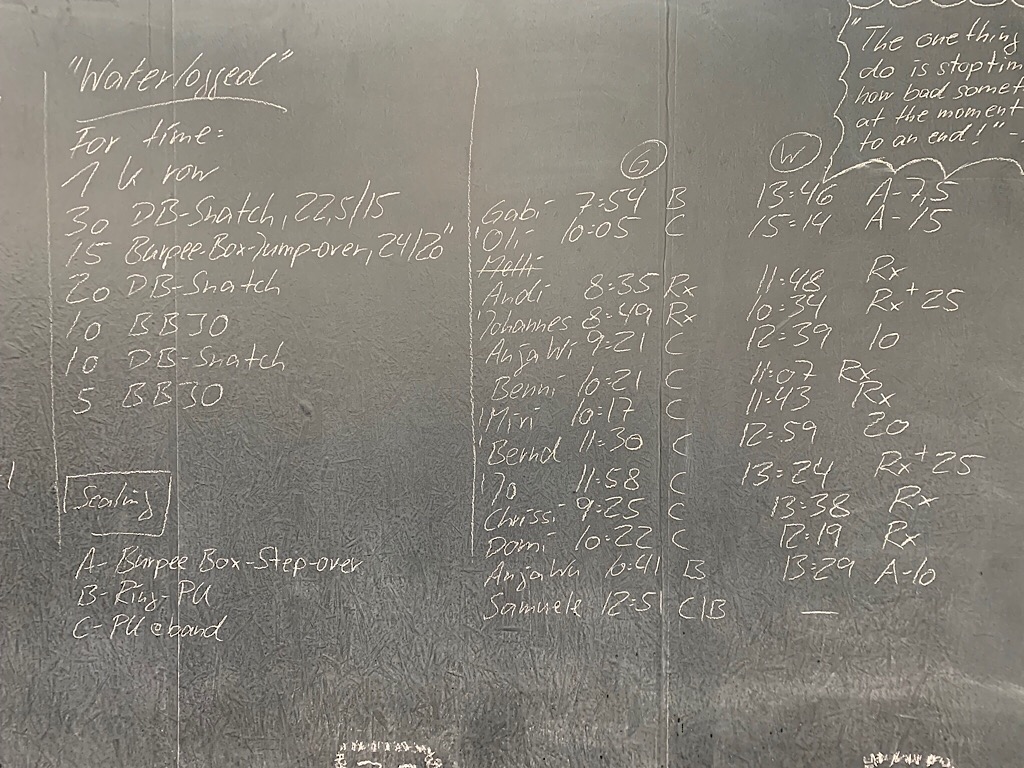 "Waterlogged"
For time:
1 k row
30 DB-Snatch, 22,5/15
15 Burpee-Box-Jump-over, 24/20"
20 DB-Snatch
10 BBJO
10 DB-Snatch
5 BBJO
Scaling
A- Burpee Box-Step-over
B- Ring-PU
C- PU @ band
G W
Gabi 7:54 B 13:46 A-7,5
Oli 10:05 C 15:14 A-15
Andi 8:35 Rx 11:48 Rx
Johannes 8:49 Rx 10:34 Rx+25
AnjaWi 9:21 C 12:39 10
Benni 10:21 C 11:07 Rx
Miri 10:17 C 11:43 Rx
Bernd 11:30 C 12:59 20
Jo 11:58 C 13:24 Rx+25
Chrissi 9:25 C 13:38 Rx
Domi 10:22 C 12:19 Rx
AnjaWu 10:41 B 13:29 A-10
Samuele 12:51 C/B —
"The one thing
do is stop tim
how bad somet
at the moment
to an end!"-